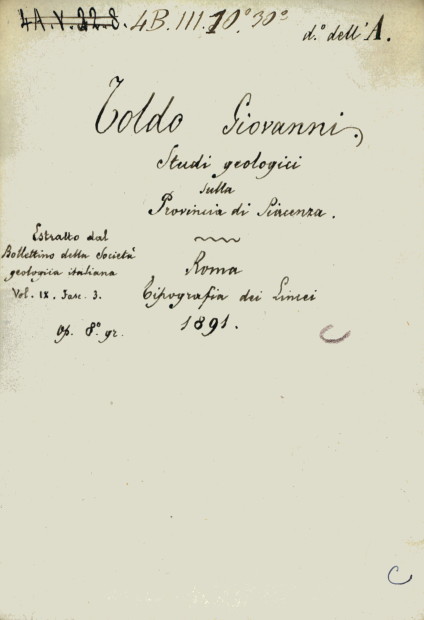 4A.V.22.8. 4B.III.10.° 30°
d.° dell'A.
Toldo Giovanni.
Studi geologici
sulla
Provincia di Piacenza.
Estratto dal
Bollettino della Società
geologica italiana
Vol. IX. Fasc. 3.
Op. 8.° gr.
Roma
Tipografia dei Lincei
1891.
C
C